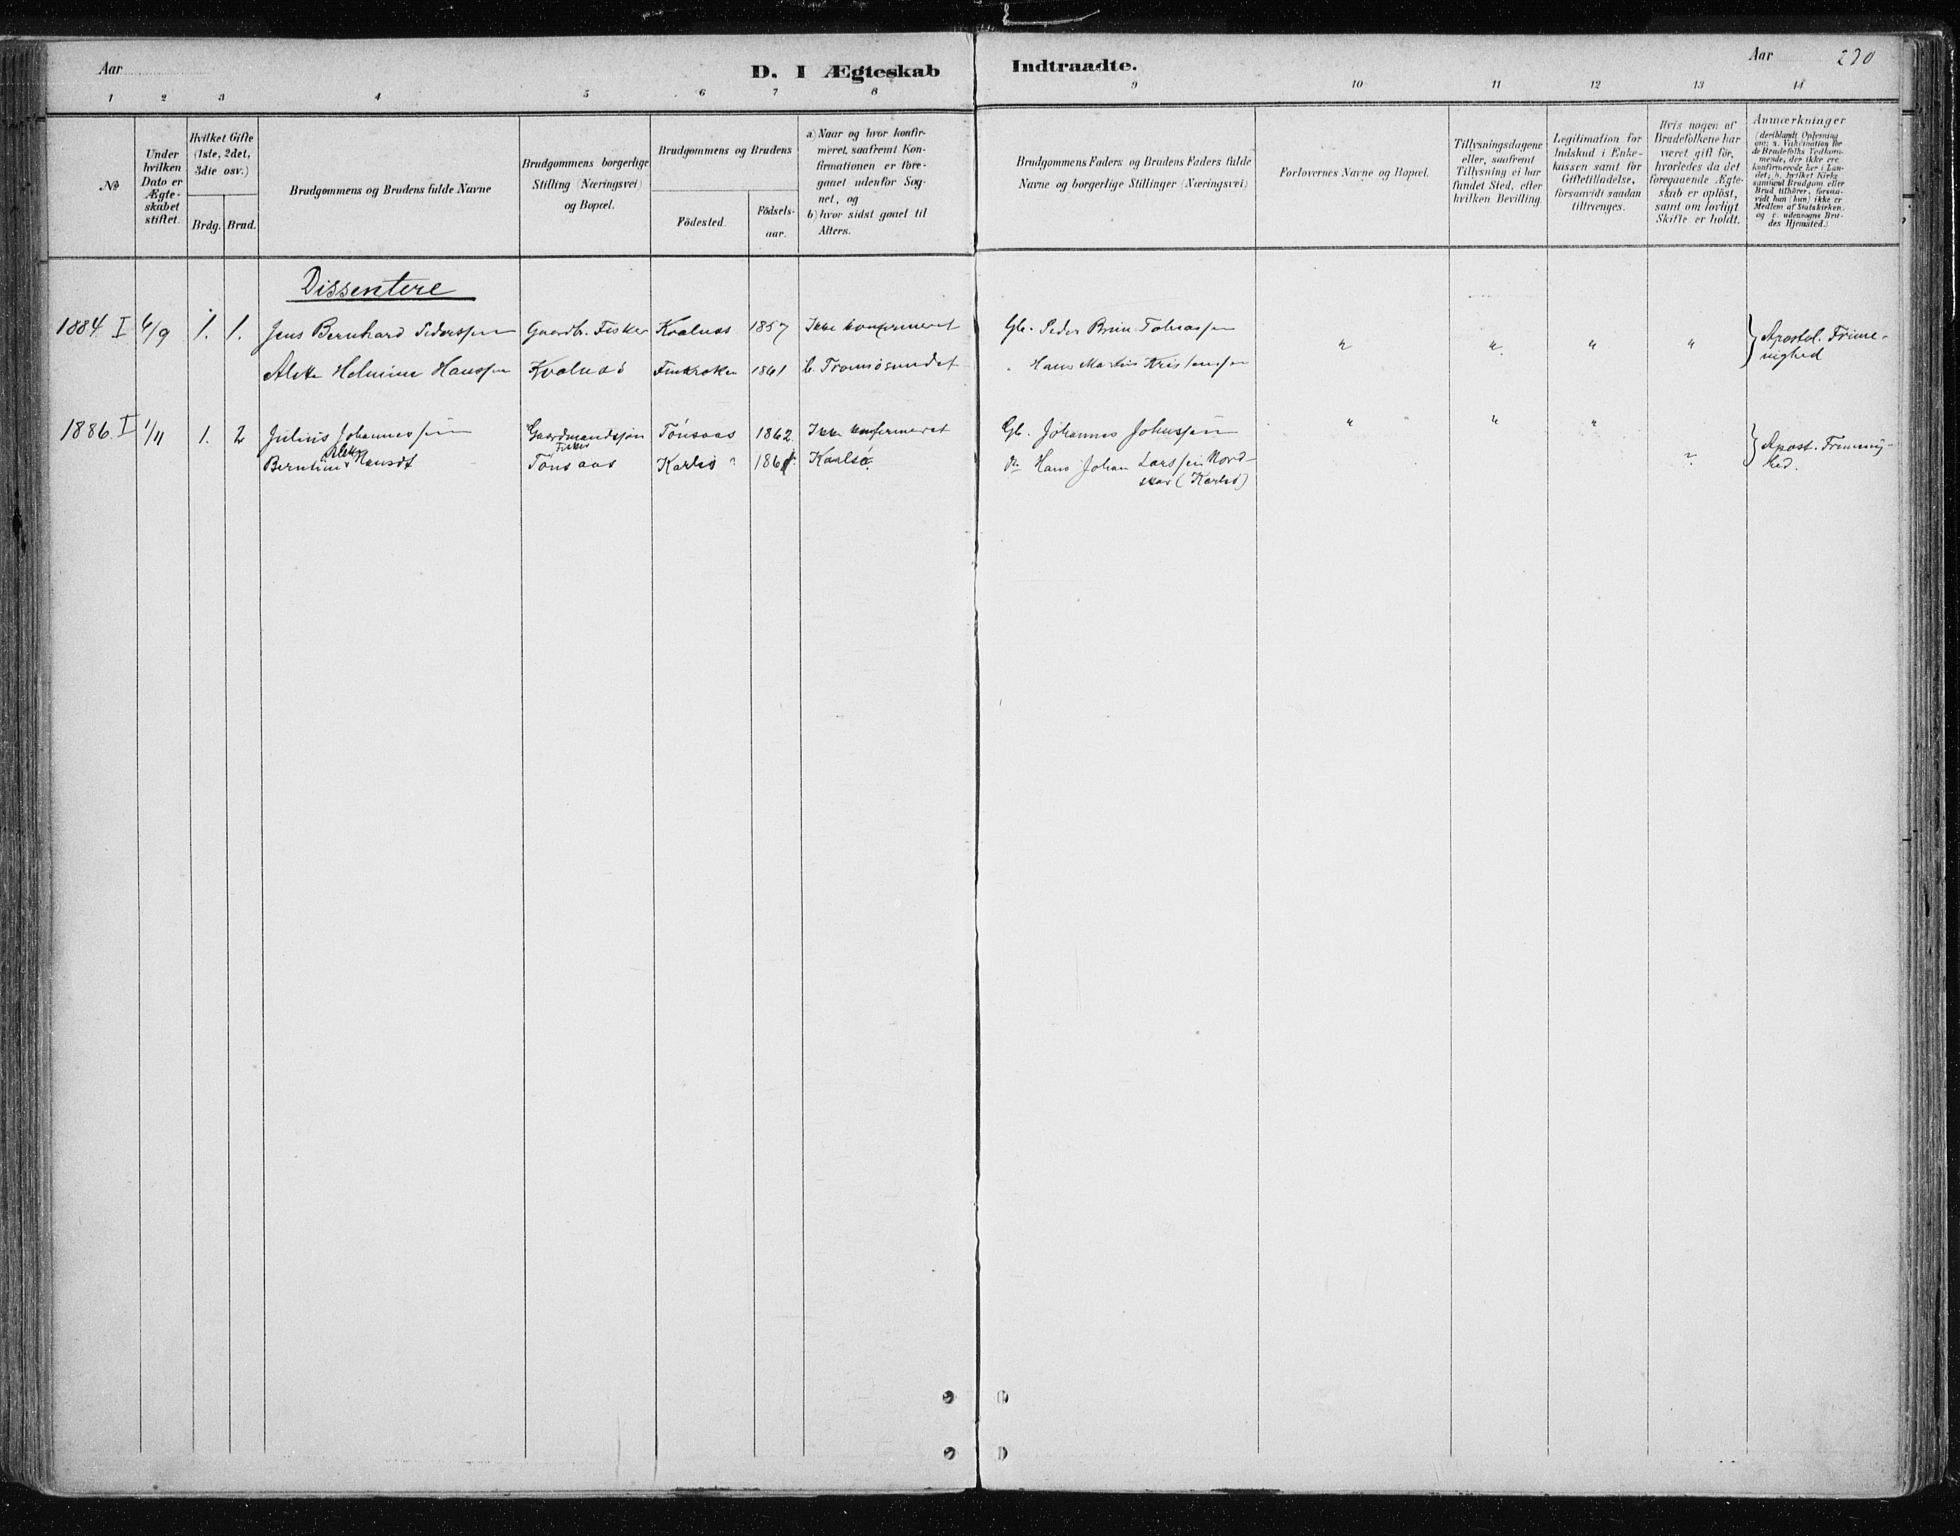 Aar
D. I Ægteskab
Indtraadte.
Aar 230
1 2 3 4 5 6 7 8 9 10 11 12 13 14
№
Under hvilken Dato er Ægteskabet stiftet.
Hvilket Gifte (1ste, 2det, 3die osv.)
Brdg. Brud.
Brudgommens og Brudens fulde Navne
Brudgommens borgerlige Stilling (Næringsvei) og Bopæl.
Brudgommens og Brudens
Födested.
Födselsaar.
a) Naar og hvor konfirmeret, saafremt Konfirmationen er foregaaet udenfor Sognet, og
b) hvor sidst gaaet til Alters.
Brudgommens Faders og Brudens Faders fulde Navne og borgerlige Stillinger (Næringsvei)
Forlovernes Navne og Bopæl.
Tillysningsdagene eller, saafremt Tillysning ei har fundet Sted, efter hvilken Bevilling.
Legitimation for Indskud i Enkekassen samt för Giftetilladelse, forsaavidt saadan tiltrænges.
Hvis nogen af Brudefolkene har været gift för, hvorledes da det foregaaende Ægteskab er oplöst, samt om lovligt Skifte er holdt.
Anmærkninger
(deriblandt Oplysning om: a. Vakcination for de Brudefolks Vedkommende, der ikke ere konfirmerede her i Landet; b. hvilket Kirkesamfund Brudgom eller Brud tilhörer, forsaavidt han (hun) ikke er Medlem af Statskirken, og c. udensogns Brudes Hjemsted.)
Dissentere
1884 I 4/9 1. 1. Jens Bernhard Pederssen Gaardbr. Fisker Kvalnæs 1857 Ikke konfirmeret Gb. Peder Brun Tobiassen " " " " } Apostol. Frime-
Aletta Helmine Hanssen Kvalnæs Finkroken 1861 b. Tromsøsundet " Hans Martin Kristensen nighed
1886. I 1/11 1. 2 Julius Johannessen Gaardmandssøn Tönsaas 1862. Ikke konfirmeret Gb. Johannes Johnssen " " " } Apost. Frimenig-
Fisker
Hansdt Tönsaas Karlsö 1861. Karlsö Hans Johan Larssen Nord- " hed.
skar (Karlsö)